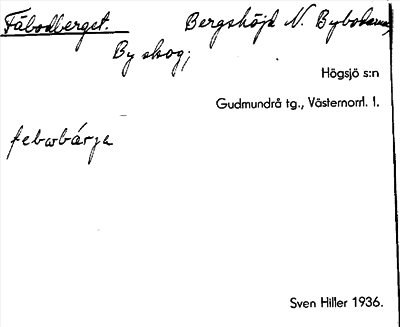 Fäbodberget. Bergshöjd N. Bybodarna,
By skog;
Högsjö s:n
Gudmundrå tg., Västernorrl. l.
febωbárja
Sven Hiller 1936.